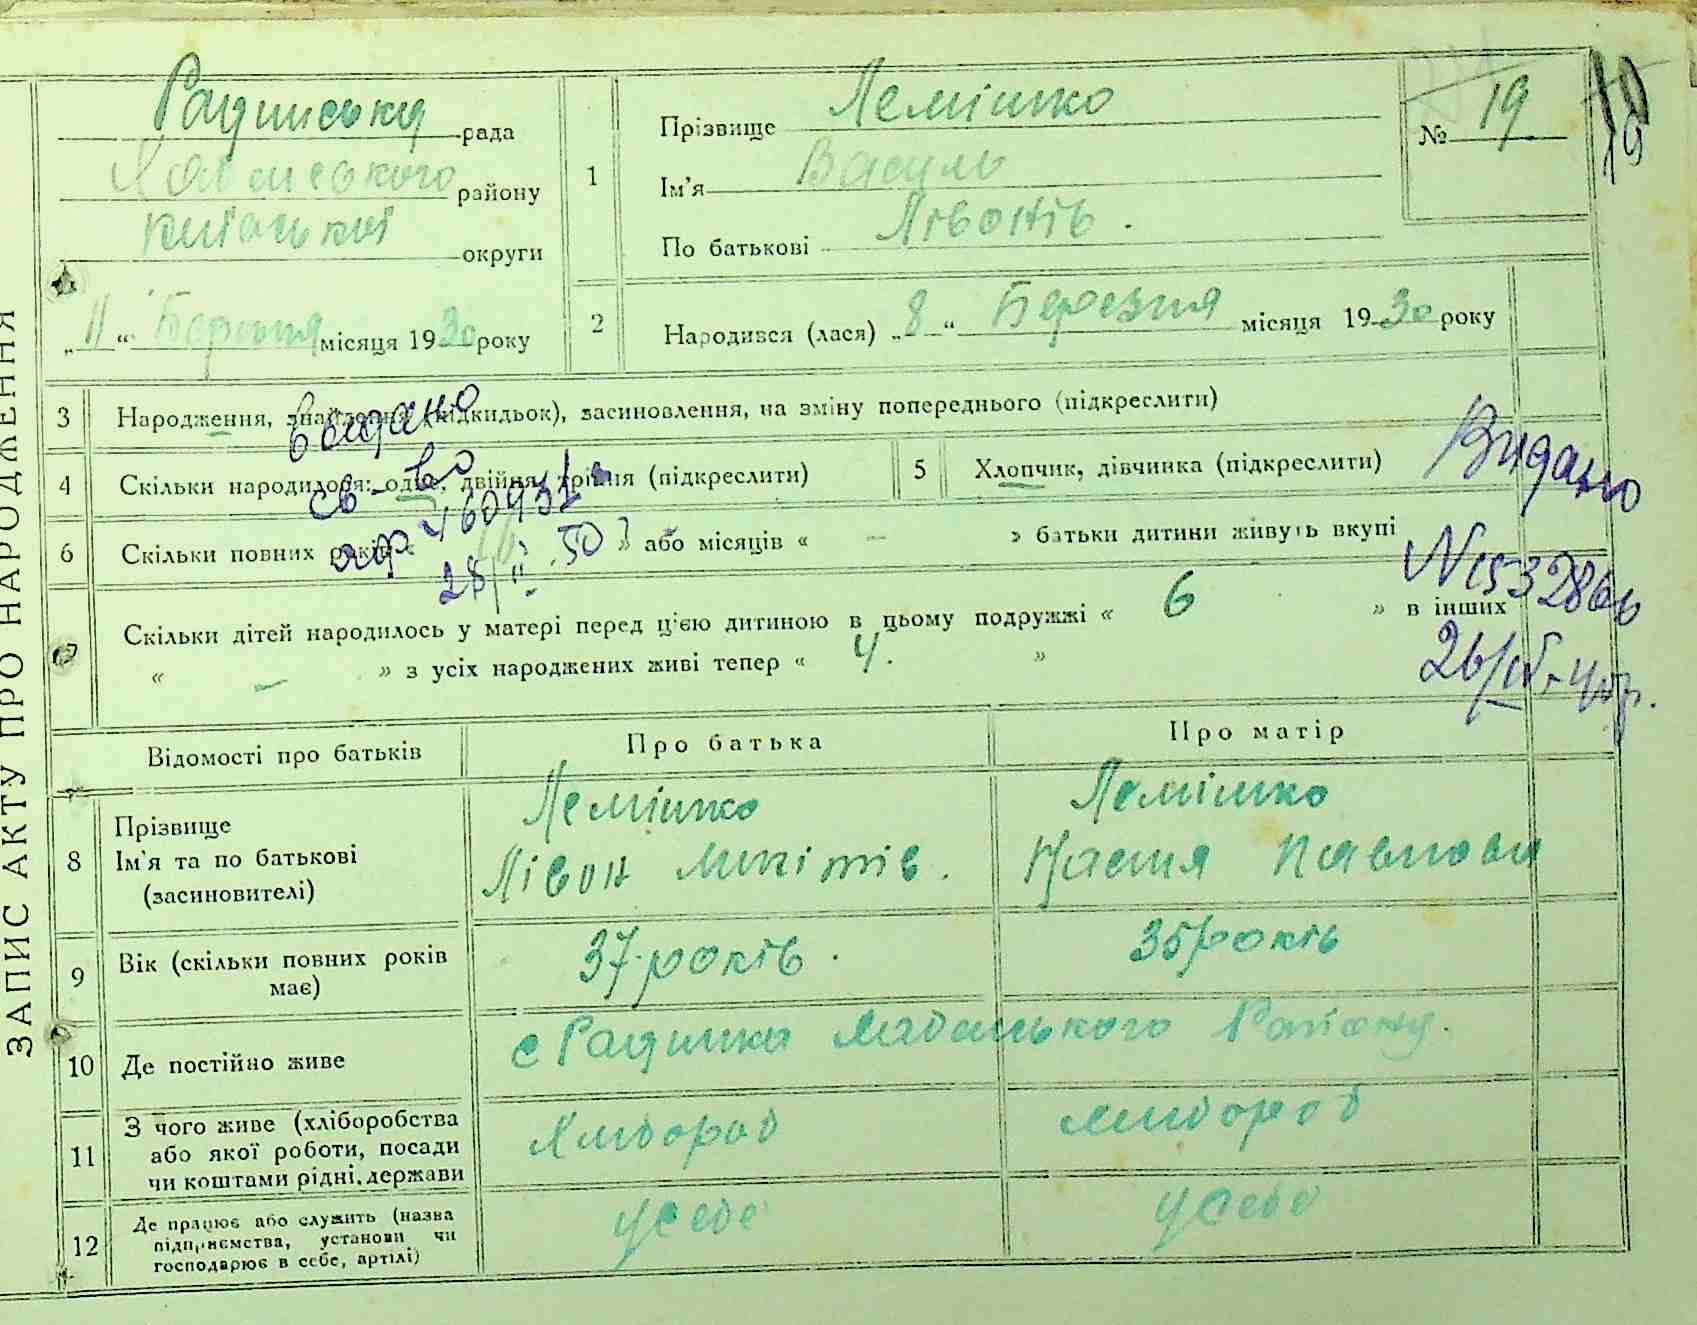 ЗАПИС АКТУ ПРО НАРОДЖЕННЯ
Радинська рада
району
Київської округи
„11“ Березня місяця 1930 року
1
Прізвище Лемішко
Ім'я Василь
По батькові Лівонів.
№ 19
19
2
Народився (лася) „8“ Березня місяця 1930 року
3 Народження, знайдення (підкидьок), засиновлення, на зміну попереднього (підкреслити)
видано
4 Скільки народилося: одне, двійня, трійня (підкреслити)
5 Хлопчик, дівчинка (підкреслити)
Видано
св-во
6 Скільки повних років « 10 » або місяців « – » батьки дитини живуть вкупі
28/II 50
7 Скільки дітей народилось у матері перед ц'єю дитиною в цьому подружжі « 6 » в інших
« – » з усіх народжених живі тепер « 4. »
Відомості про батьків
Про батька
Про матір
8 Прізвище
Ім'я та по батькові
(засиновителі)
Лемішко
Лівон Микітів.
Лемішко
Настя Павлова
9 Вік (скільки повних років
має)
37 років.
35 років
10 Де постійно живе
с Радинка Району.
11 З чого живе (хліборобства
або якої роботи, посади
чи коштами рідні, держави
Хлибороб
хлибороб
12 Де працює або служить (назва
підприємства, установи чи
господарює в себе, артілі)
у себе
у себе